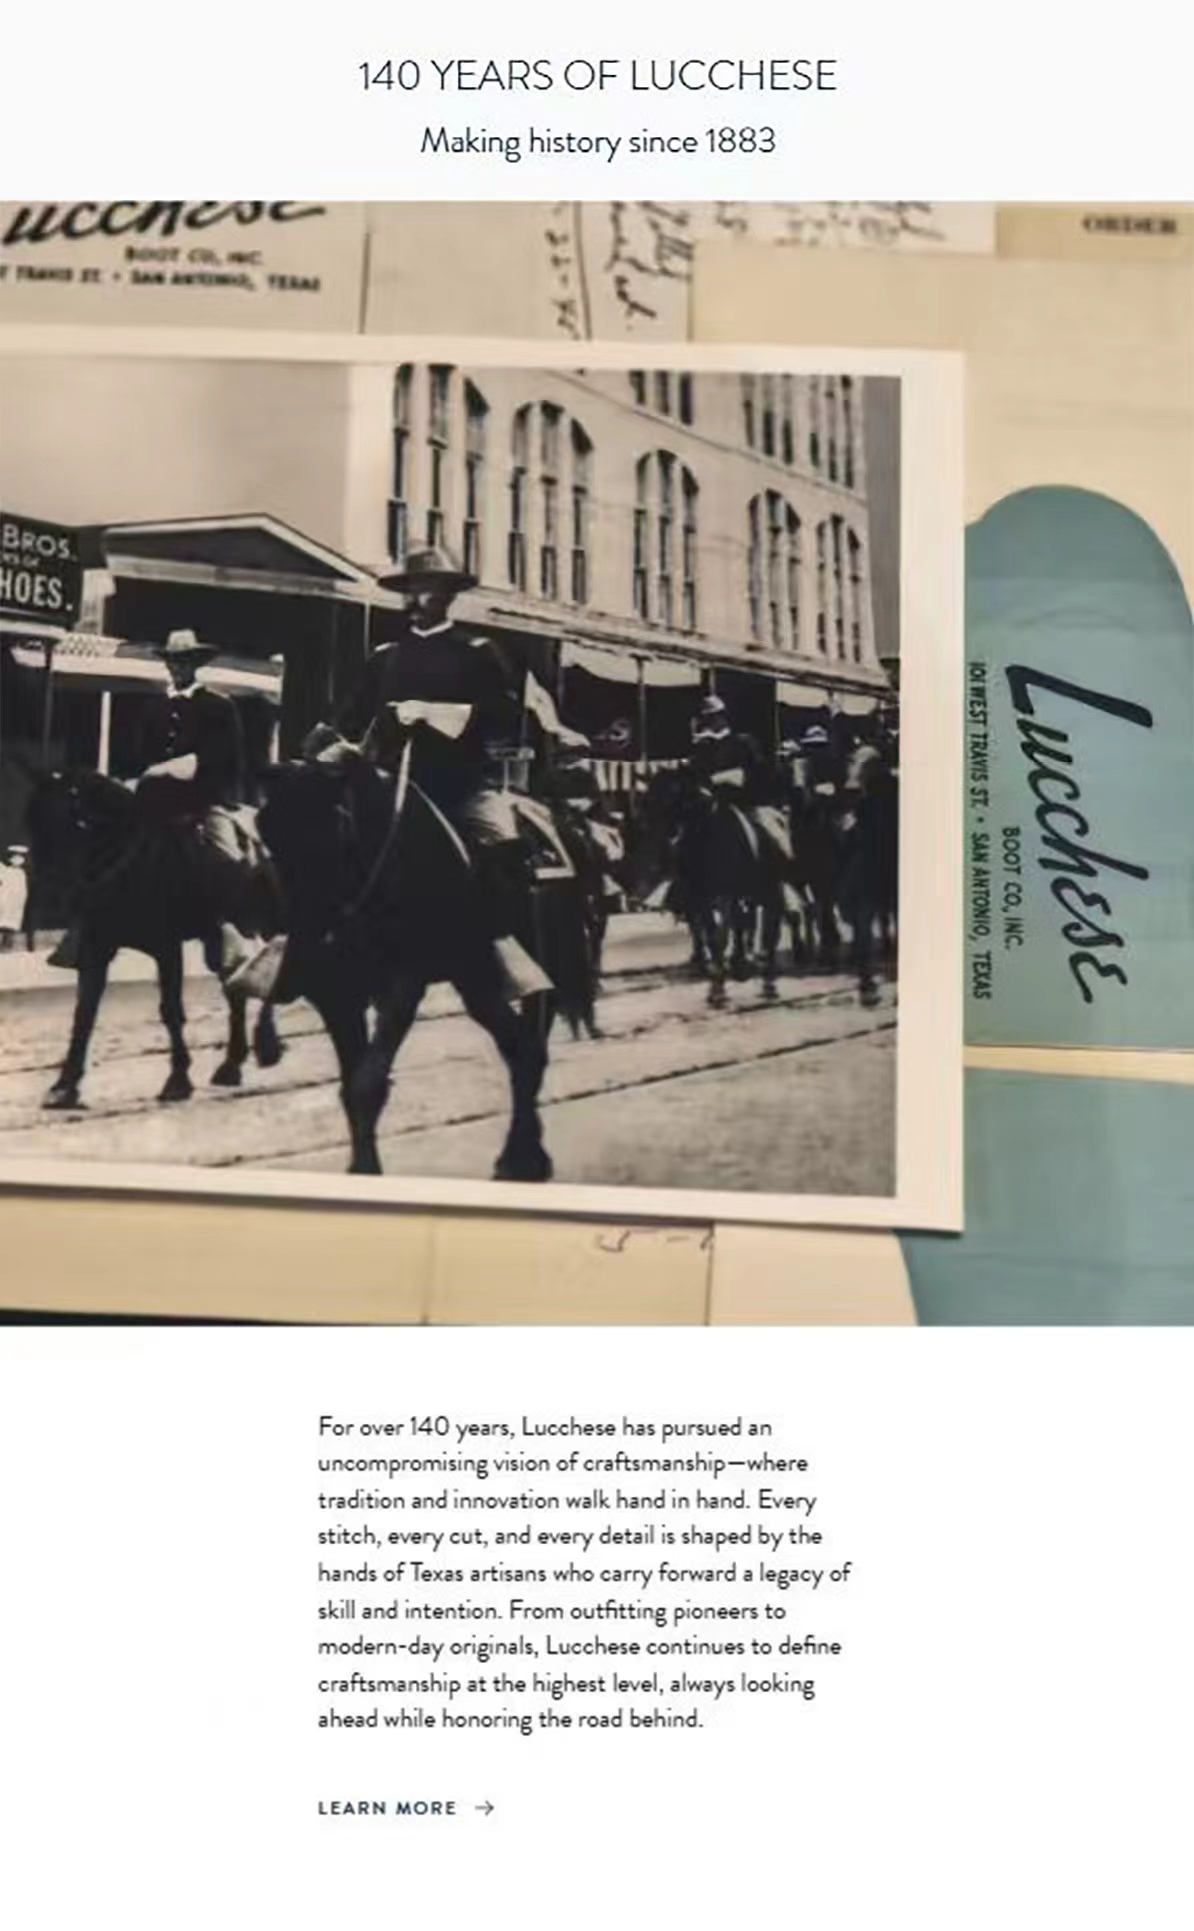 140 YEARS OF LUCCHESE
Making history since 1883
ucchese
BOOT CO., INC.
TRAVIS ST. • SAN ANTONIO, TEXAS
ORDER
BROS.
HOES.
Lucchese
BOOT CO., INC.
101 WEST TRAVIS ST. • SAN ANTONIO, TEXAS
For over 140 years, Lucchese has pursued an
uncompromising vision of craftsmanship—where
tradition and innovation walk hand in hand. Every
stitch, every cut, and every detail is shaped by the
hands of Texas artisans who carry forward a legacy of
skill and intention. From outfitting pioneers to
modern-day originals, Lucchese continues to define
craftsmanship at the highest level, always looking
ahead while honoring the road behind.
LEARN MORE →